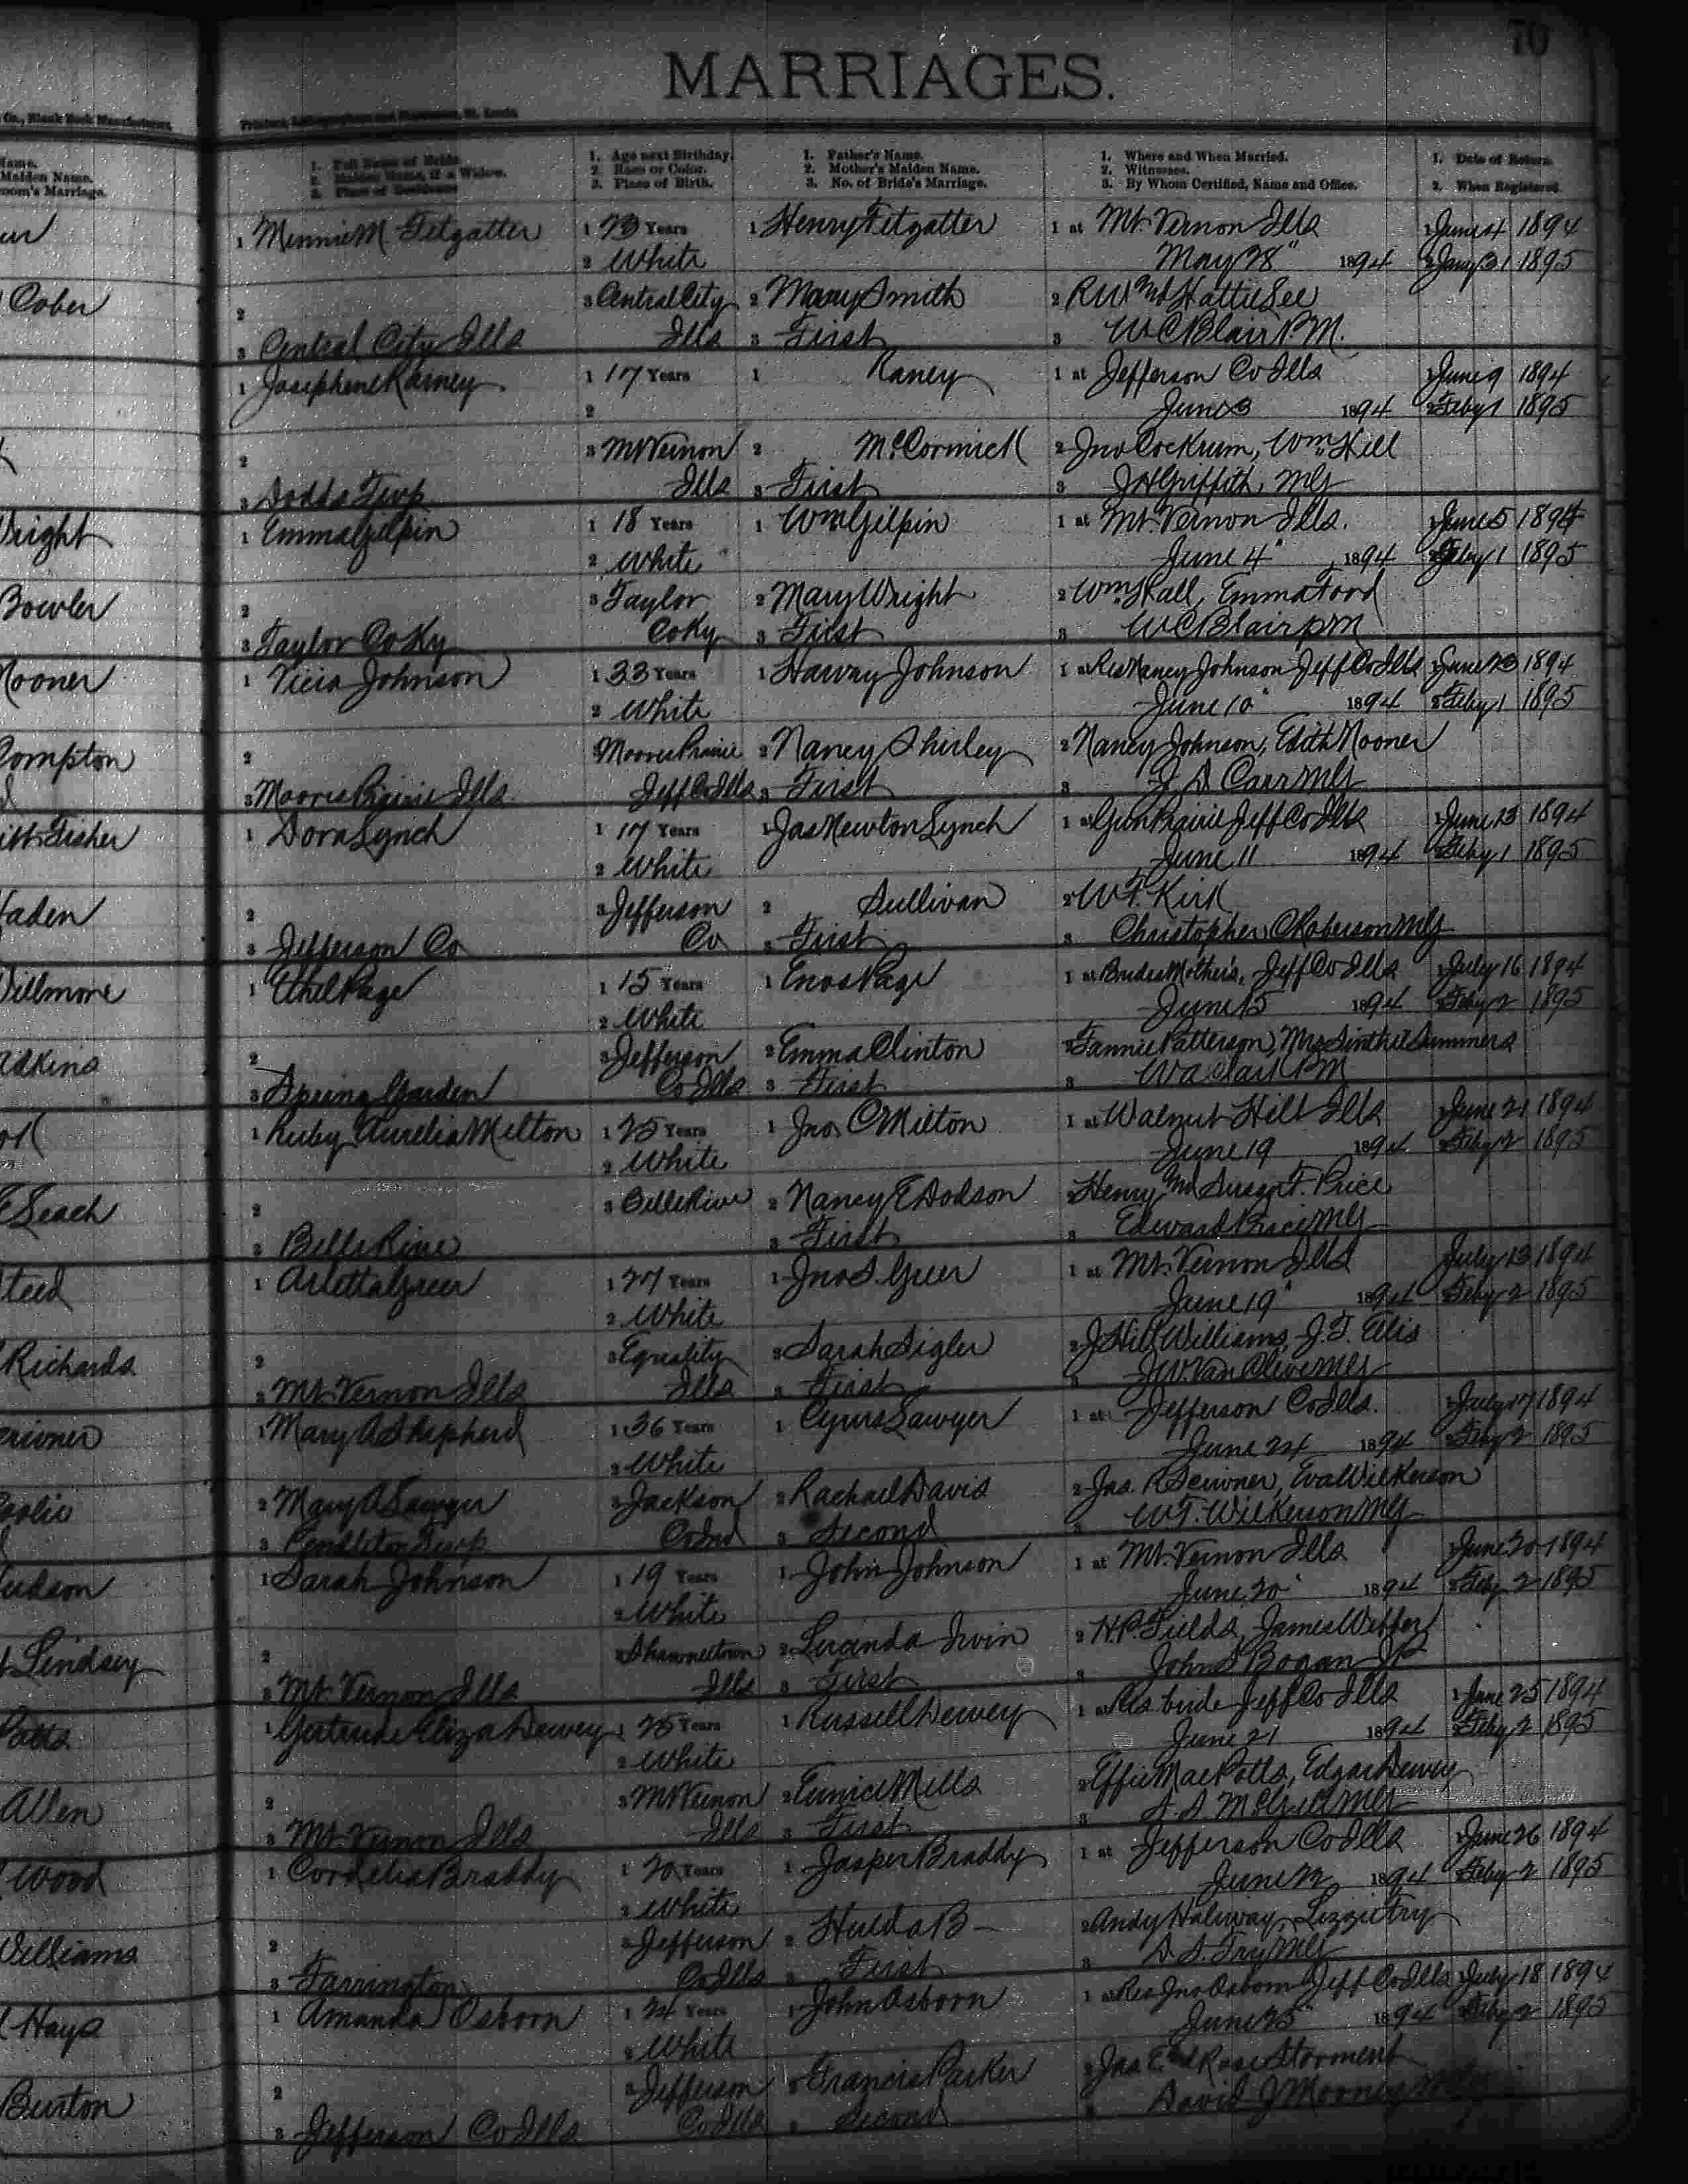 70
MARRIAGES.
Co., Blank Book Manufacturers,
Name.
Maiden Name.
Groom's Marriage.
1. Full Name of Bride
2. Maiden Name, if a Widow.
3. Place of Residence
1. Age next Birthday.
2. Race or Color.
3. Place of Birth.
1. Father's Name.
2. Mother's Maiden Name.
3. No. of Bride's Marriage.
1. Where and When Married.
2. Witnesses.
3. By Whom Certified, Name and Office.
1. Date of Return.
2. When Registered.
1 Minnie M Fetgatter 1 23 Years 1 Henry Fetgatter 1 at Mt. Vernon Ills 1 June 4 1894
2 White May 28" 1894 2 Jany 31 1895
Cober 2 3 Central City 2 Mary Smith 2 R W and Hattie Lee
3 Central City Ills Ills 3 First 3 W C Blair P.M.
1 Josephene Rainey 1 17 Years 1 Raney 1 at Jefferson Co Ills 1 June 9 1894
2 June 3 1894 2 Feby 1 1895
2 3 Mt Vernon 2 McCormick 2 Jno Cockrum, Wm Hill
3 Dodds Twp Ills 3 First 3 J H Griffith, MG
Wright 1 Emma Gilpin 1 18 Years 1 Wm Gilpin 1 at Mt. Vernon Ills. 1 June 5 1894
2 White June 4" 1894 2 Feby 1 1895
Bowler 2 3 Taylor 2 Mary Wright 2 Wm Hall, Emma Ford
3 Taylor Co Ky Co Ky 3 First 3 W C Blair pm
Mooner 1 Vicia Johnson 1 33 Years 1 Harvay Johnson 1 at Res Nancy Johnson Jeff Co Ills 1 June 23 1894
2 White June 10" 1894 2 Feby 1 1895
Compton 2 3 Moores Prairie 2 Nancy Shirley 2 Nancy Johnson, Edith Mooner
3 Moores Prairie Ills Jeff Co Ills 3 First 3 Carr MG
Fisher 1 Dora Lynch 1 17 Years 1 Jas Newton Lynch 1 at Gun Prairie Jeff Co Ills 1 June 13 1894
2 White June 11 1894 2 Feby 1 1895
Haden 2 3 Jefferson 2 Sullivan 2 W F. Kirk
3 Jefferson Co Co 3 First 3 Christopher C Roberson MG
Dillmore 1 Ethel Page 1 15 Years 1 Enos Page 1 at Brides Mother's, Jeff Co Ills 1 July 16 1894
2 White June 15 1894 2 Feby 2 1895
Adkins 2 3 Jefferson 2 Emma Clinton 2 Fannie Patterson, Mrs Sinthie Summers
3 Spring Garden Co Ills 3 First 3 PM
1 Ruby Aurelia Milton 1 25 Years 1 Jno. C Milton 1 at Walnut Hill Ills 1 June 21 1894
2 White June 19 1894 2 Feby 2 1895
Leach 2 3 Belle Rive 2 Nancy E Dodson 2 Henry and Susan F. Price
3 Belle Rive 3 First 3 Edward Price MG
Steed 1 Arletta Greer 1 27 Years 1 Jno S. Greer 1 at Mt. Vernon Ills 1 July 13 1894
2 White June 19" 1894 2 Feby 2 1895
Richards 2 3 Equality 2 Sarah Sigler 2 J Hill Williams, J. F. Ellis
3 Mt. Vernon Ills Ills 3 First 3 J W Van Cleve MG
Scrivner 1 Mary A Shepherd 1 36 Years 1 Cyrus Sawyer 1 at Jefferson Co Ills. 1 July 17 1894
2 White June 24 1894 2 Feby 2 1895
2 Mary A Sawyer 3 Jackson 2 Rachael Davis 2 Jas. R Scrivner, Eva Wilkerson
3 Pendleton Twp Co Ind 3 Second 3 W T. Wilkerson MG
Hudson 1 Sarah Johnson 1 19 Years 1 John Johnson 1 at Mt. Vernon Ills 1 June 20 1894
2 White June 20" 1894 2 Feby 2 1895
Lindsey 2 3 Shawneetown 2 Lucinda Irvin 2 H P. Fields, James
3 Mt. Vernon Ills Ills 3 First 3 John S Bogan JP
Potts 1 Gertrude Eliza Dewey 1 25 Years 1 Russell Dewey 1 at Res bride Jeff Co Ills 1 June 25 1894
2 White June 21 1894 2 Feby 2 1895
Allen 2 3 Mt Vernon 2 Eunice Mills 2 Effie Mae Potts, Edgar Dewey
3 Mt. Vernon Ills Ills 3 First 3 MG
Wood 1 Cordelia Braddy 1 20 Years 1 Jasper Braddy 1 at Jefferson Co Ills 1 June 26 1894
2 White June 22 1894 2 Feby 2 1895
Williams 2 3 Jefferson 2 Hulda B- 2 Andy Haliway, Lizzie Fry
3 Farrington Co Ills 3 First 3 Fry MG
Hays 1 Amanda Osborn 1 24 Years 1 John Osborn 1 at Res Jno Osborn Jeff Co Ills 1 July 18 1894
2 White June 25" 1894 2 Feby 2 1895
Burton 2 3 Jefferson 2 Francis Parker 2 Jas E. and Rose Storment
3 Jefferson Co Ills Co Ills 3 Second 3 David J Mooney